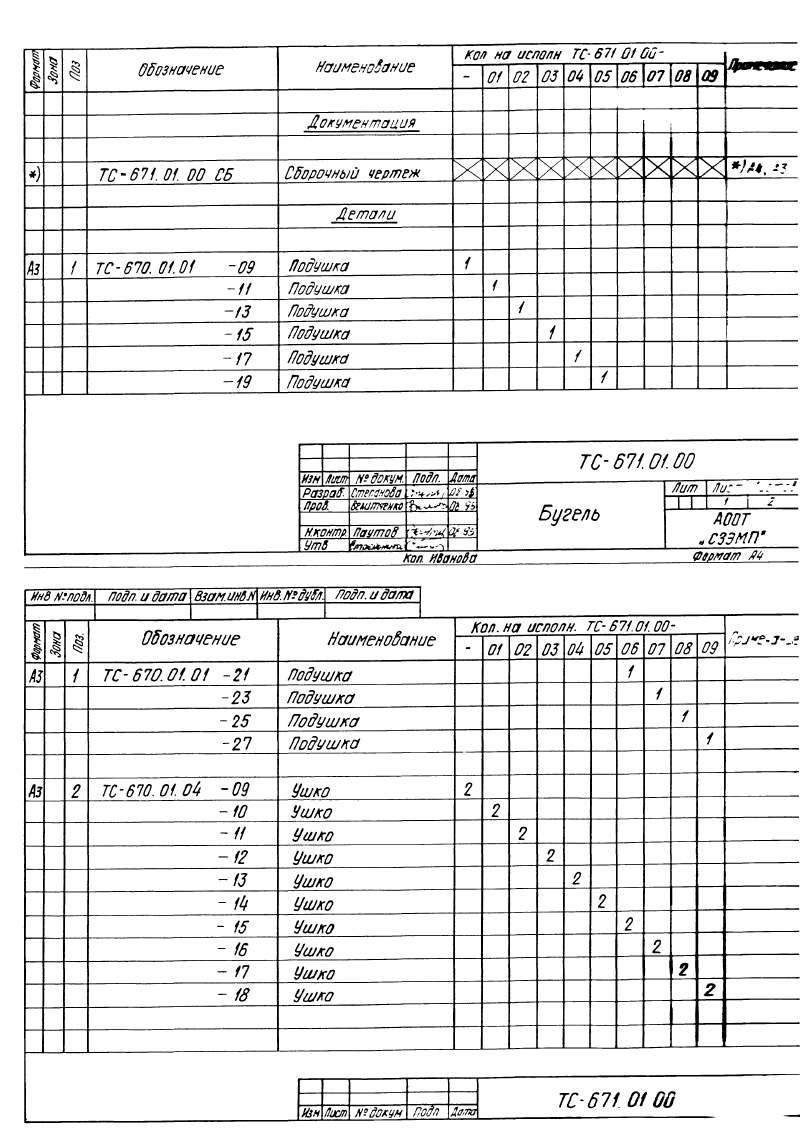 Формат Зона Поз Обозначение Наименование Кол на исполн ТС-671 01 00- Примечание
- 01 02 03 04 05 06 07 08 09
Документация
*) ТС-671.01.00 СБ Сборочный чертеж *) А4,
Детали
А3 1 ТС-670.01.01 -09 Подушка 1
-11 Подушка 1
-13 Подушка 1
-15 Подушка 1
-17 Подушка 1
-19 Подушка 1
ТС-671.01.00
Изм Лист № докум. Подп. Дата
Разраб. Степанова
Пров. 95
Н.контр Паутов 95
Утв
Бугель
Лит Лист
1 2
АООТ
„СЗЭМП"
Коп. Иванова Формат А4
Инв № подл. Подп. и дата Взам.инв.N Инв. № дубл. Подп. и дата
Формат Зона Поз. Обозначение Наименование Кол. на исполн. ТС-671.01.00-
- 01 02 03 04 05 06 07 08 09
А3 1 ТС-670.01.01 -21 Подушка 1
-23 Подушка 1
-25 Подушка 1
-27 Подушка 1
А3 2 ТС-670.01.04 -09 Ушко 2
-10 Ушко 2
-11 Ушко 2
-12 Ушко 2
-13 Ушко 2
-14 Ушко 2
-15 Ушко 2
-16 Ушко 2
-17 Ушко 2
-18 Ушко 2
Изм Лист № докум Подп Дата ТС-671.01 00